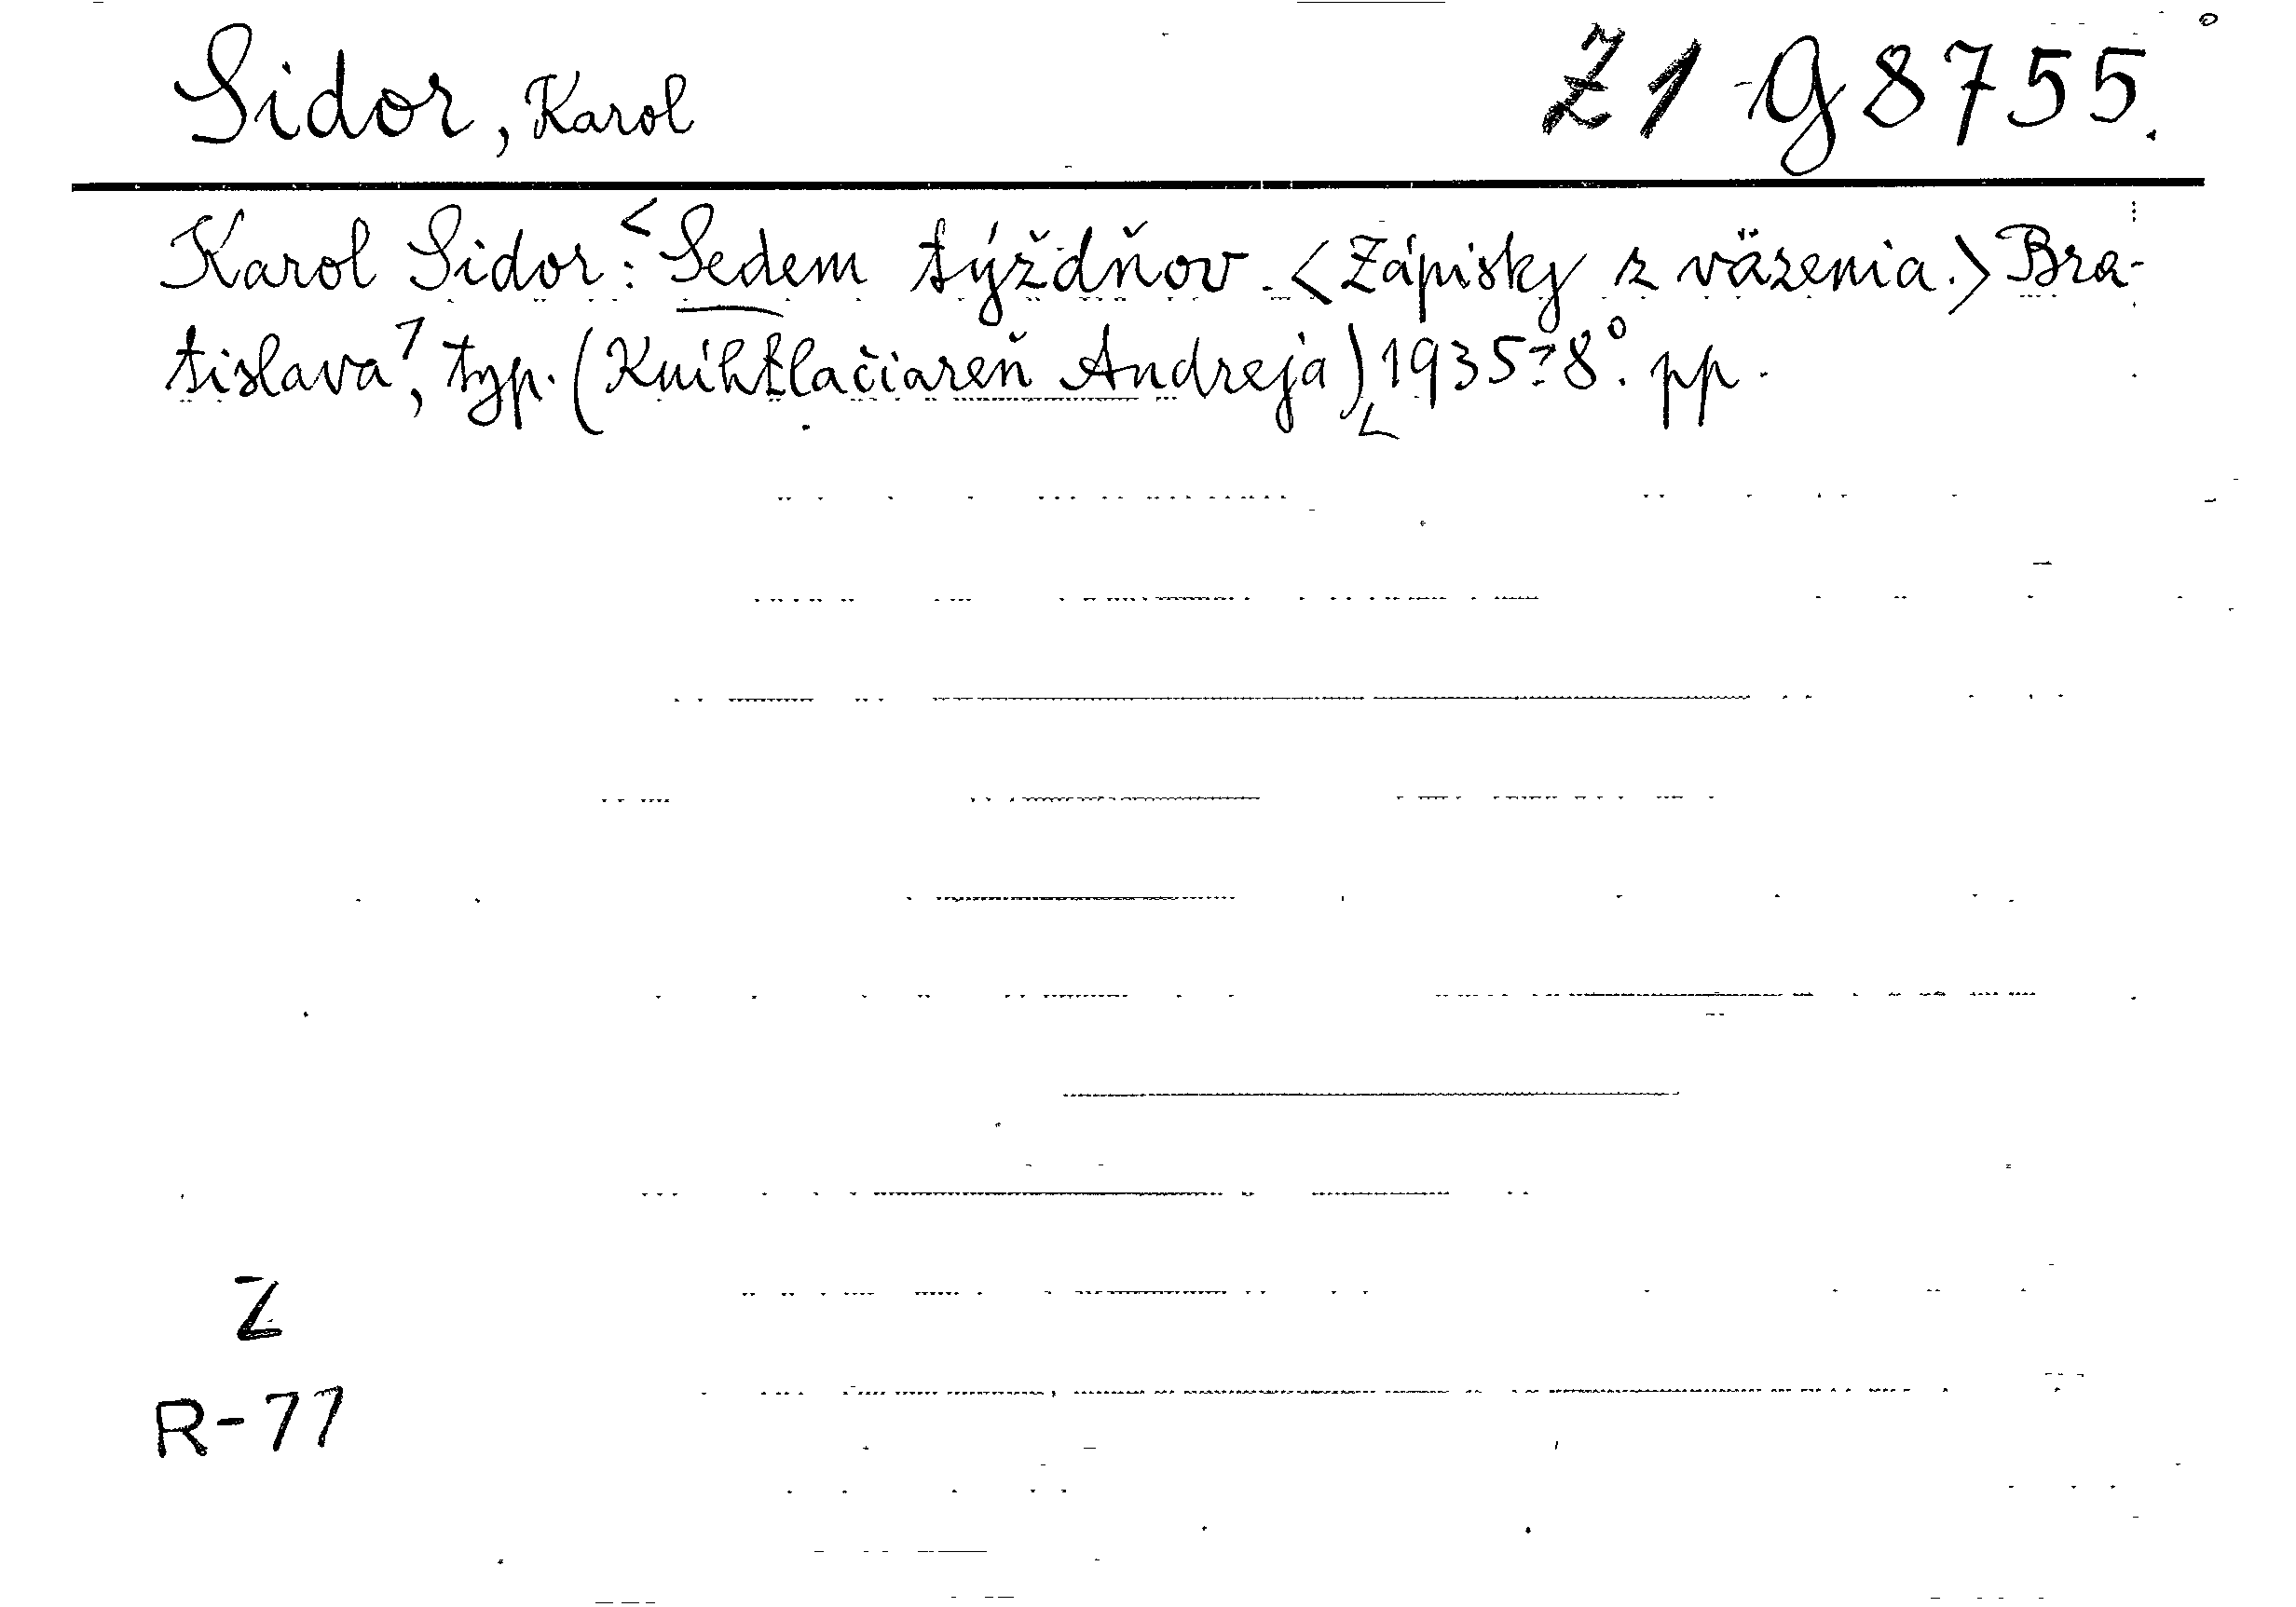 Sidor, Karol Z1-G8755.
Karol Sidor: <Sedem týždňov. <Zápisky z väzenia.> Bra-
tislava>, typ. (Knihtlačiareň Andreja) <1935> 8°. pp.
Z
R-77